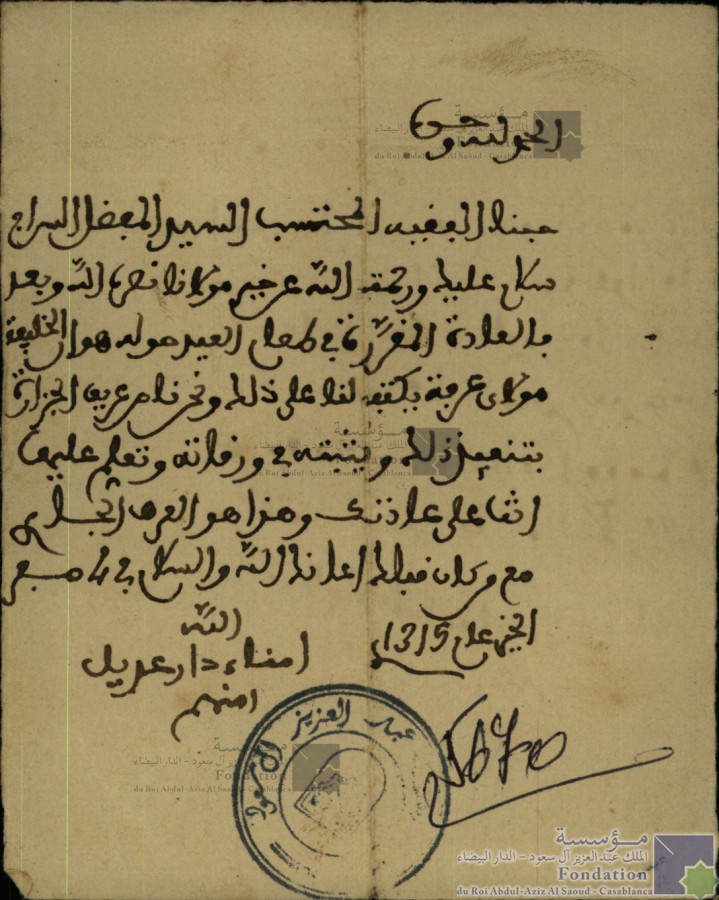 الحمد لله وحده
محبنا الفقيه المحتسب السيد المفضل السراج
سلام عليك ورحمة الله عن خير مولانا نصره الله وبعد
فالعادة المقررة في طعام العيد هو ان الخليفة
مولاي عرفة يكتب لنا على ذلك ونحن نامر عريف الجزارة
بتنفيذ ذلك ويثبته في ورقاته وتعلم عليه
على عادتك وهذا هو العرف
من قبلك اعانك الله والسلام في صفر
الخير عام 1315
امناء دار عديل
امنهم
الله
عبد العزيز آل سعود
مؤسسة
الملك عبد العزيز آل سعود - الدار البيضاء
Fondation
du Roi Abdul-Aziz Al Saoud - Casablanca